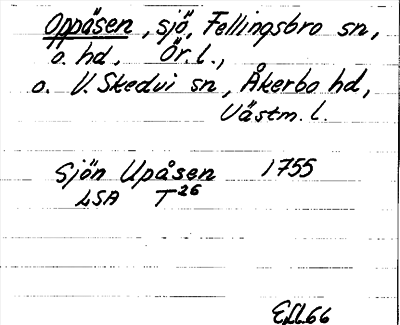 Oppåsen, sjö, Fellingsbro sn,
o. hd, Ör. l.,
o. V. Skedvi sn, Åkerbo hd,
Västm. l.
Sjön Upåsen 1755
LSA T26